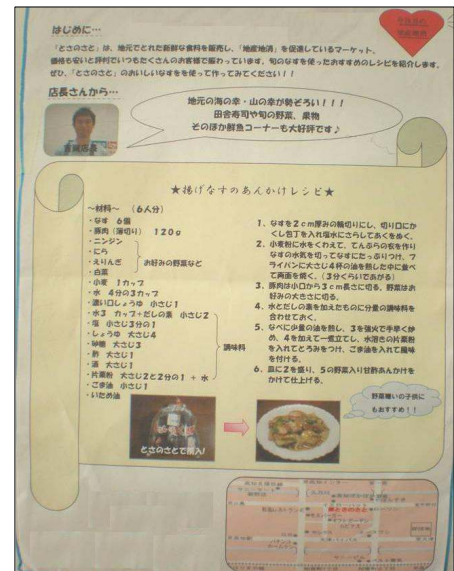 はじめに…
「とさのさと」は、地元でとれた新鮮な食料を販売し、「地産地消」を促進しているマーケット。
価格も安いと評判でいつもたくさんのお客様で賑わっています。旬のなすを使ったおすすめのレシピを紹介します。
ぜひ、「とさのさと」のおいしいなすを使って作ってみてください！！
店長さんから…
地元の海の幸・山の幸が勢ぞろい！！！
田舎寿司や旬の野菜、果物
そのほか鮮魚コーナーも大好評です♪
★揚げなすのあんかけレシピ★
～材料～　（6人分）
・なす　6個
・豚肉（薄切り）　120g
・ニンジン
・にら
・えりんぎ
・白菜
お好みの野菜など
・小麦　1カップ
・水　4分の3カップ
・濃い口しょうゆ　小さじ1
・水3　カップ＋だしの素　小さじ2
・塩　小さじ3分の1
・しょうゆ　大さじ4
・砂糖　大さじ3
・酢　大さじ1
・酒　大さじ1
・片栗粉　大さじ2と2分の1　＋　水
・ごま油　小さじ1
・いため油
調味料
1、なすを2cm厚みの輪切りにし、切り口にか
くし包丁を入れ塩水にさらしてあくをぬく。
2、小麦粉に水をくわえて、てんぷらの衣を作り
なすの水気を切ってなすにたっぷりつけ、フ
ライパンに大さじ4杯の油を熱した中に並べ
て両面を焼く。（3分くらいであがる）
3、豚肉は小口から3cm長さに切る。野菜はお
好みの大きさに切る。
4、水とだしの素を加えたものに分量の調味料を
合わせておく。
5、なべに少量の油を熱し、3を強火で手早く炒
め、4を加えて一煮立てし、水溶きの片栗粉
を入れてとろみをつけ、ごま油を入れて風味
を付ける。
6、皿に2を盛り、5の野菜入り甘酢あんかけを
かけて仕上げる。
とさのさとで購入！
野菜嫌いの子供に
もおすすめ！！